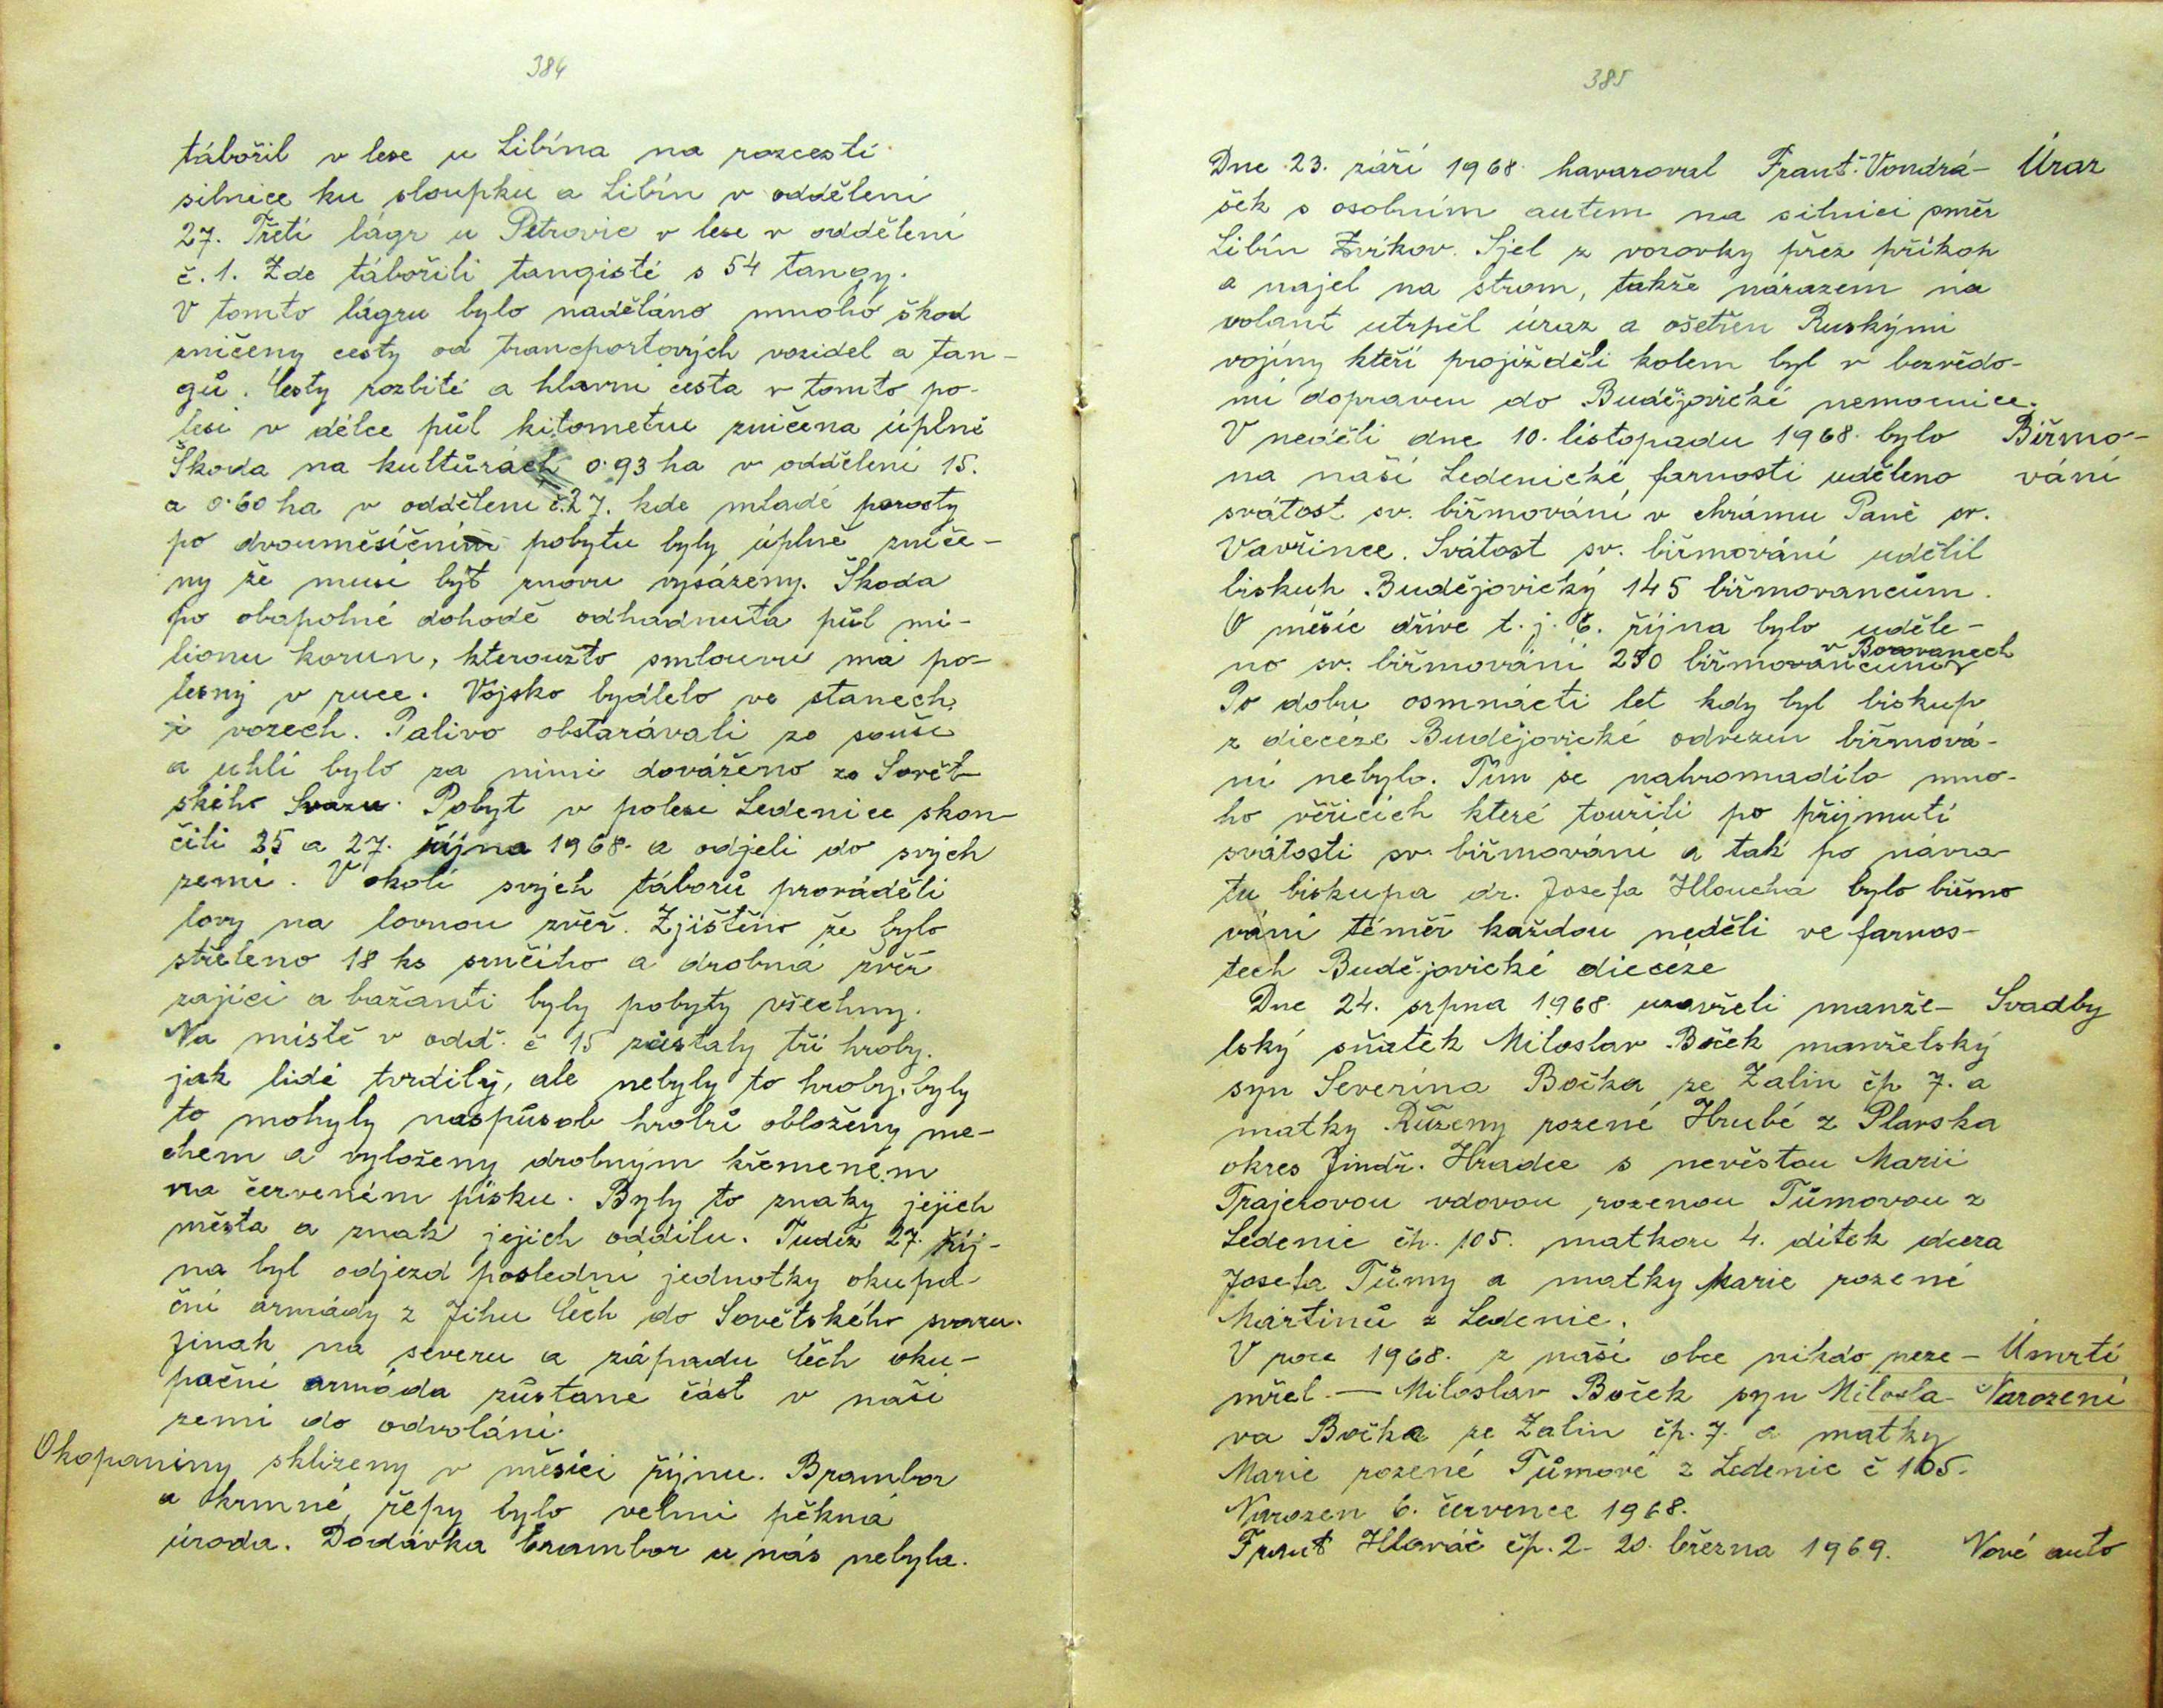 384
tábořil v lese u Libína na rozcestí
silnice ku sloupku a Libín v oddělení
27. Třetí lágr u Petrovic v lese v oddělení
č. 1. Zde tábořili tangisté s 54 tangy.
V tomto lágru bylo naděláno mnoho škod
zničeny cesty od transportových vozidel a tan-
gů. Cesty rozbité a hlavní cesta v tomto po-
lesí v délce půl kilometru zničena úplně
Škoda na kultůrách 0.93 ha v oddělení 15.
a 0.60 ha v oddělení č.27. kde mladé porosty
po dvouměsíčním pobytu byly úplně zniče-
ny že musí být znovu vysázeny. Škoda
po obapolné dohodě odhadnuta půl mi-
lionu korun, kteroužto smlouvu má po-
lesný v ruce. Vojsko bydlelo ve stanech
i vozech. Palivo obstarávali ze souše
a uhlí bylo za nimi dováženo ze Sovět-
ského Svazu. Pobyt v polesí Ledenice skon-
čili 25 a 27. října 1968. a odjeli do svých
zemí. V okolí svých táborů prováděli
lovy na lovnou zvěř. Zjištěno že bylo
střeleno 18 ks srnčího a drobná zvěř
zajíci a bažanti byly pobyty všechny.
Na místě v odd. č 15 zůstaly tři hroby.
jak lidé tvrdily, ale nebyly to hroby, byly
to mohyly naspůsob hrobů obloženy me-
chem a vyloženy drobným křemenem
na červeném písku. Byly to znaky jejich
města a znak jejich oddílu. Tudíž 27. říj-
na byl odjezd poslední jednotky okupa-
ční armády z Jihu Čech do Sovětského svazu.
Jinak na severu a západu Čech oku-
pační armáda zůstane část v naší
zemi do odvolání.
Okopaniny sklizeny v měsíci říjnu. Brambor
a krmné řepy bylo velmi pěkná
úroda. Dodávka brambor u nás nebyla.
385
Dne 23. září 1968. havaroval Frant. Vondrá- Úraz
šek s osobním autem na silnici směr
Libín Zvíkov. Sjel z vozovky přez příkop
a najel na strom, takže nárazem na
volant utrpěl úraz a ošetřen Ruskými
vojíny kteří projížděli kolem byl v bezvědo-
mí dopraven do Budějovické nemocnice.
V neděli dne 10. listopadu 1968. bylo Biřmo-
na naší Ledenické farnosti uděleno vání
svátost sv. biřmování v chrámu Páně sv.
Vavřince. Svátost sv. biřmování udělil
biskup Budějovický 145 biřmovancům.
O měsíc dříve t. j. 6. října bylo uděle-
v Borovanech
no sv. biřmování 250 biřmovancům
Po dobu osmnácti let kdy byl biskup
z diecéze Budějovické odvezen biřmová-
ní nebylo. Tím se nahromadilo mno-
ho věřících které toužili po přijmutí
svátosti sv. biřmování a tak po návra-
tu biskupa dr. Josefa Hloucha bylo biřmo
vání téměř každou neděli ve farnos-
tech Budějovické diecéze
Dne 24. srpna 1968. uzavřeli manže- Svadby
lský sňatek Miloslav Boček manželský
syn Severína Bočka ze Zalin čp 7. a
matky Růženy rozené Hrubé z Plavska
okres Jindř. Hradec s nevěstou Marií
Trajerovou vdovou rozenou Tůmovou z
Ledenic čp. 105. matkou 4. dítek dcera
Josefa Tůmy a matky Marie rozené
Martinů z Ledenic.
V roce 1968. z naší obce nikdo neze- Úmrtí
mřel. — Miloslav Boček syn Milosla- Narození
va Bočka ze Zalin čp. 7. a matky
Marie rozené Tůmové z Ledenic č 105.
Narozen 6. července 1968.
Frant Hlováč čp. 2. 20. března 1969. Nové auto